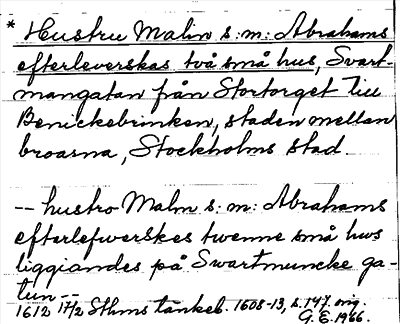 * Hustru Malin s: m: Abrahams
efterleverskas två små hus, Svart-
mangatan från Stortorget till
Benickebrinken, staden mellan
broarna, Stockholms stad.
-- hustro Malin s: m: Abrahams
efterlefwerskes twenne små hws
liggiandes på Swartmuncke ga-
tun --
1612 17/2 Sthms tänkeb. 1608-13, s. 147. orig.
G. E. 1966.